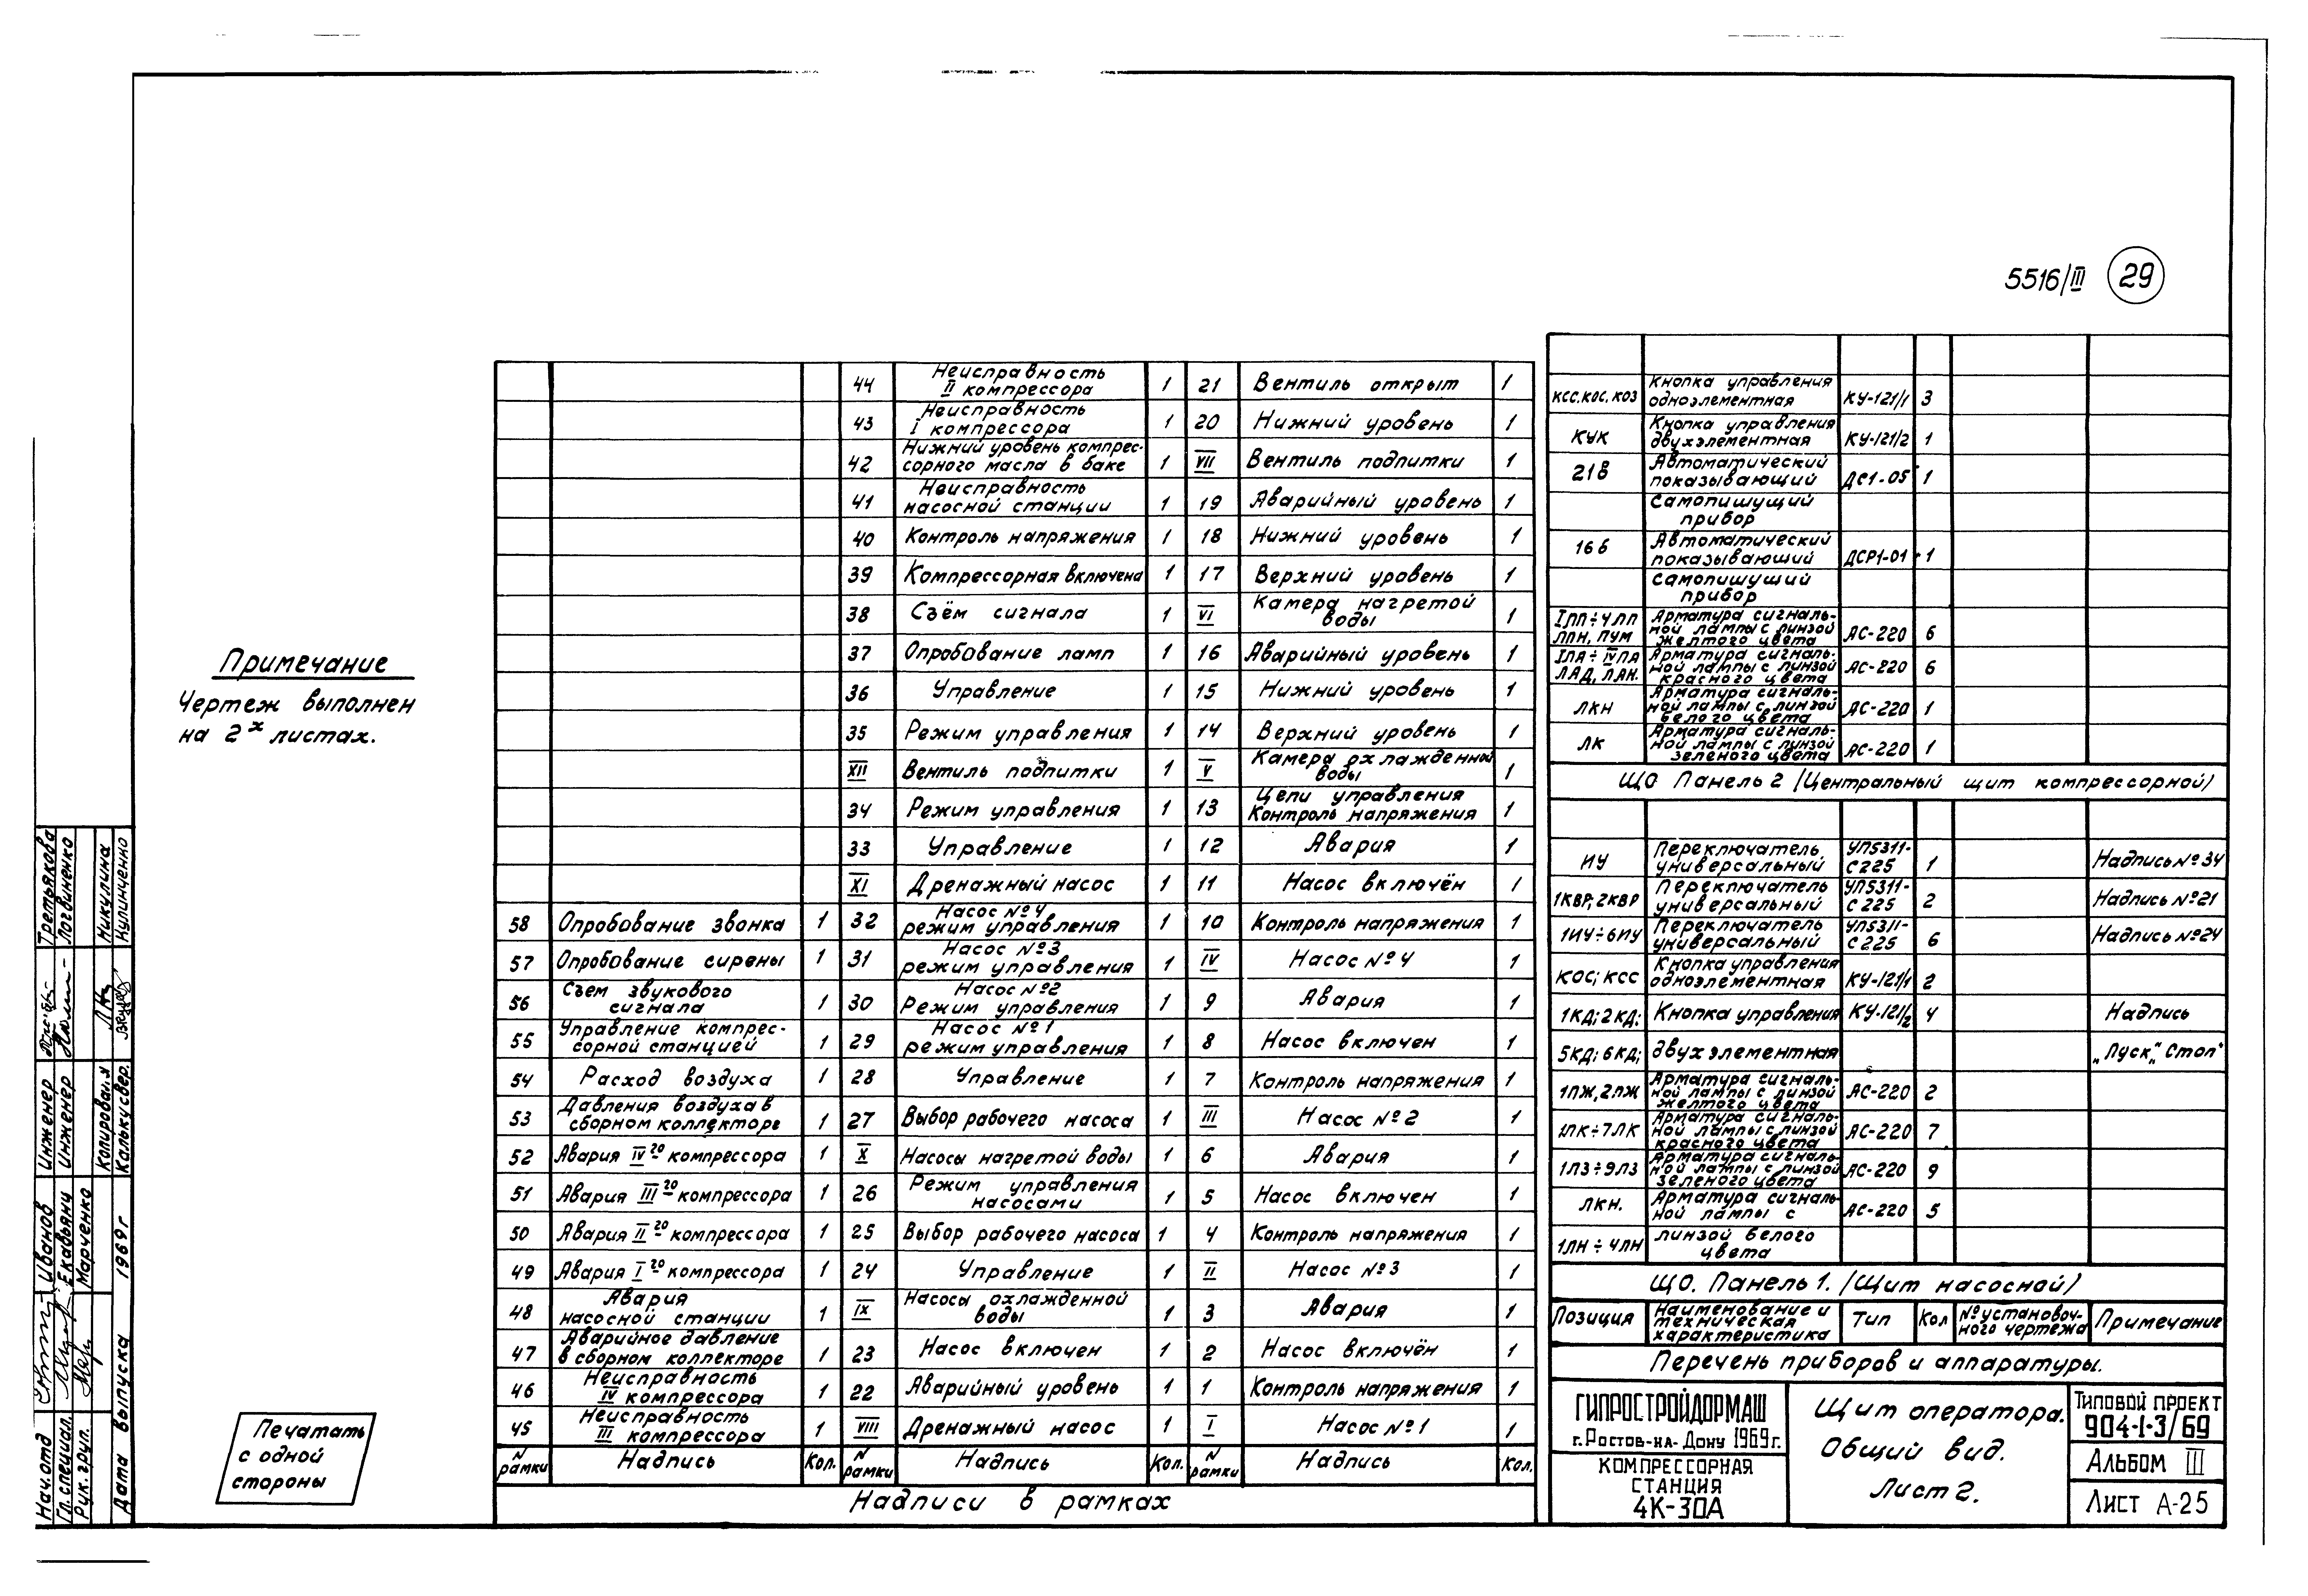 5516/III 29
Примечание
Чертеж выполнен
на 2х листах.
Печатать
с одной
стороны
44 Неисправность II компрессора 1 21 Вентиль открыт 1
43 Неисправность I компрессора 1 20 Нижний уровень 1
42 Нижний уровень компрессорного масла в баке 1 VII Вентиль подпитки 1
41 Неисправность насосной станции 1 19 Аварийный уровень 1
40 Контроль напряжения 1 18 Нижний уровень 1
39 Компрессорная включена 1 17 Верхний уровень 1
38 Съём сигнала 1 VI Камера нагретой воды 1
37 Опробование ламп 1 16 Аварийный уровень 1
36 Управление 1 15 Нижний уровень 1
35 Режим управления 1 14 Верхний уровень 1
XII Вентиль подпитки 1 V Камера охлажденной воды 1
34 Режим управления 1 13 Цепи управления Контроль напряжения 1
33 Управление 1 12 Авария 1
XI Дренажный насос 1 11 Насос включён 1
58 Опробование звонка 1 32 Насос №4 режим управления 1 10 Контроль напряжения 1
57 Опробование сирены 1 31 Насос №3 режим управления 1 IV Насос №4 1
56 Съем звукового сигнала 1 30 Насос №2 Режим управления 1 9 Авария 1
55 Управление компрес-сорной станцией 1 29 Насос №1 режим управления 1 8 Насос включен 1
54 Расход воздуха 1 28 Управление 1 7 Контроль напряжения 1
53 Давления воздуха в сборном коллекторе 1 27 Выбор рабочего насоса 1 III Насос №2 1
52 Авария IVго компрессора 1 X Насосы нагретой воды 1 6 Авария 1
51 Авария IIIго компрессора 1 26 Режим управления насосами 1 5 Насос включен 1
50 Авария IIго компрессора 1 25 Выбор рабочего насоса 1 4 Контроль напряжения 1
49 Авария Iго компрессора 1 24 Управление 1 II Насос №3 1
48 Авария насосной станции 1 IX Насосы охлажденной воды 1 3 Авария 1
47 Аварийное давление в сборном коллекторе 1 23 Насос включен 1 2 Насос включён 1
46 Неисправность IV компрессора 1 22 Аварийный уровень 1 1 Контроль напряжения 1
45 Неисправность III компрессора 1 VIII Дренажный насос 1 I Насос №1 1
N рамки Надпись Кол. N рамки Надпись Кол. N рамки Надпись Кол.
Надписи в рамках
КСС, КОС, КОЗ Кнопка управления одноэлементная КУ-121/1 3
КУК Кнопка управления двухэлементная КУ-121/2 1
21в Автоматический показывающий ДС1-05 1
Самопишущий прибор
16б Автоматический показывающий ДСР1-01 1
Самопишущий прибор
1ЛП÷4ЛП ЛПН, ПУМ Арматура сигналь-ной лампы с линзой желтого цвета АС-220 6
IЛА÷IVЛА ЛАД, ЛАН. Арматура сигналь-ной лампы с линзой красного цвета АС-220 6
ЛКН Арматура сигналь-ной лампы с линзой белого цвета АС-220 1
ЛК Арматура сигналь-ной лампы с линзой зеленого цвета АС-220 1
ЩО Панель 2 (Центральный щит компрессорной)
ИУ Переключатель универсальный УП5311-С225 1 Надпись №34
1КВР; 2КВР Переключатель универсальный УП5311-С225 2 Надпись №21
1ИУ÷6ИУ Переключатель универсальный УП5311-С225 6 Надпись №24
КОС; КСС Кнопка управления одноэлементная КУ-121/1 2
1КД; 2КД; Кнопка управления КУ-121/2 4 Надпись
5КД; 6КД; двухэлементная „Пуск“, Стоп“
1ЛЖ, 2ЛЖ Арматура сигналь-ной лампы с линзой желтого цвета АС-220 2
1ЛК÷7ЛК Арматура сигналь-ной лампы с линзой красного цвета АС-220 7
1ЛЗ÷9ЛЗ Арматура сигналь-ной лампы с линзой зеленого цвета АС-220 9
ЛКН. Арматура сигналь-ной лампы с АС-220 5
1ЛН÷4ЛН линзой белого цвета
ЩО. Панель 1. (Щит насосной)
Позиция Наименование и техническая характеристика Тип Кол № установоч-ного чертежа Примечание
Перечень приборов и аппаратуры.
ГИПРОСТРОЙДОРМАШ
г. Ростов-на-Дону 1969г.
КОМПРЕССОРНАЯ
СТАНЦИЯ
4К-30А
Щит оператора.
Общий вид.
Лист 2.
ТИПОВОЙ ПРОЕКТ
904-1-3/69
Альбом III
Лист А-25
Нач. отд Иванов Инженер Третьякова
Гл. специал. Екавьянц Инженер Логвиненко
Рук. груп. Марченко
Копировал Микулина
Дата выпуска 1969г Калькусвер. Кулинченко